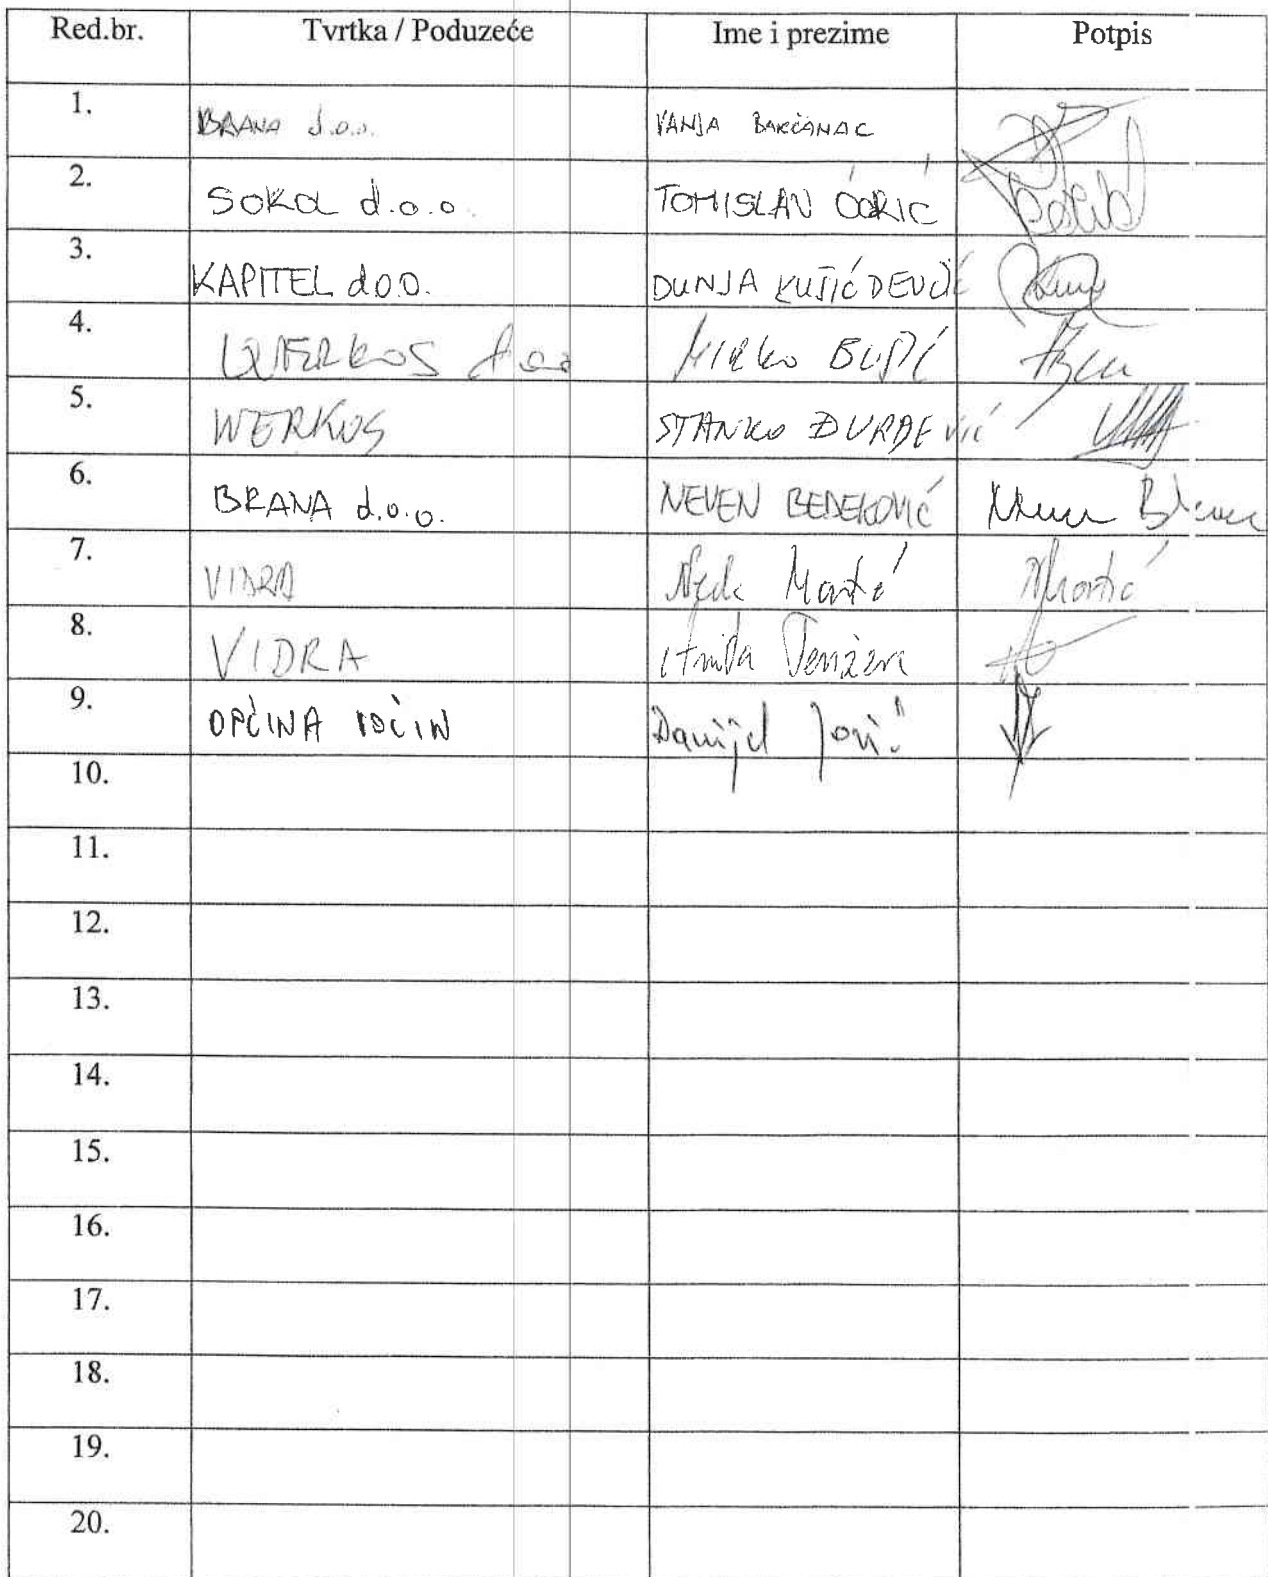 Red.br. Tvrtka / Poduzeće Ime i prezime Potpis
1. BRANA d.o.o. VANJA
2. SOKOL d.o.o. TOMISLAV ĆORIĆ
3. KAPITEL d.o.o. DUNJA KUŠIĆ DEVČIĆ
4. WERKOS d.o.o. MIRKO BUŠIĆ
5. WERKOS STANKO ĐURĐEVIĆ
6. BRANA d.o.o. NEVEN BEDEKOVIĆ
7. VIDRA
8. VIDRA
9. OPĆINA VOĆIN Danijel
10.
11.
12.
13.
14.
15.
16.
17.
18.
19.
20.